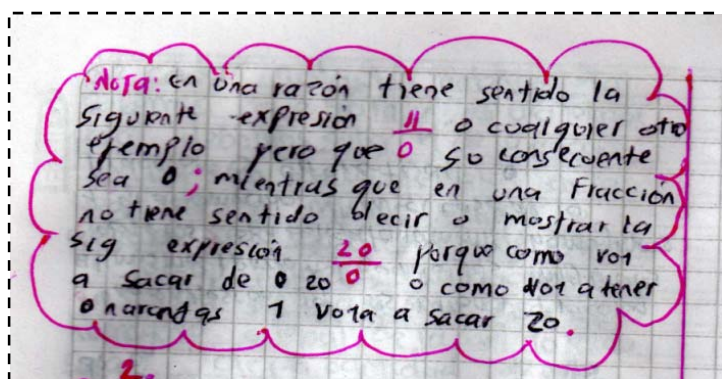 Nota: en una razón tiene sentido la
siguiente expresión 11/0 o cualquier otro
ejemplo pero que su consecuente
sea 0; mientras que en una Fracción
no tiene sentido decir o mostrar la
sig expresión 20/0 porque como voy
a sacar de 0 20 o como voy a tener
0 narangas y voy a sacar 20.
2.